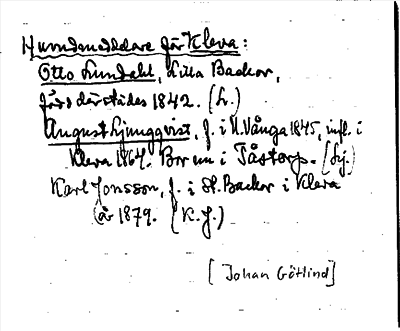 Huvudmeddelare för Kleva:
Otto Lundahl, Lilla Backor,
född därstädes 1842. (L.)
August Ljungqvist, f. i N. Vånga 1845, infl. i
Kleva 1864. Bor nu i Tåstorp. (Lj.)
Karl Jonsson, f. i St. Backor i Kleva
1879. (K.J.)
[Johan Götlind]